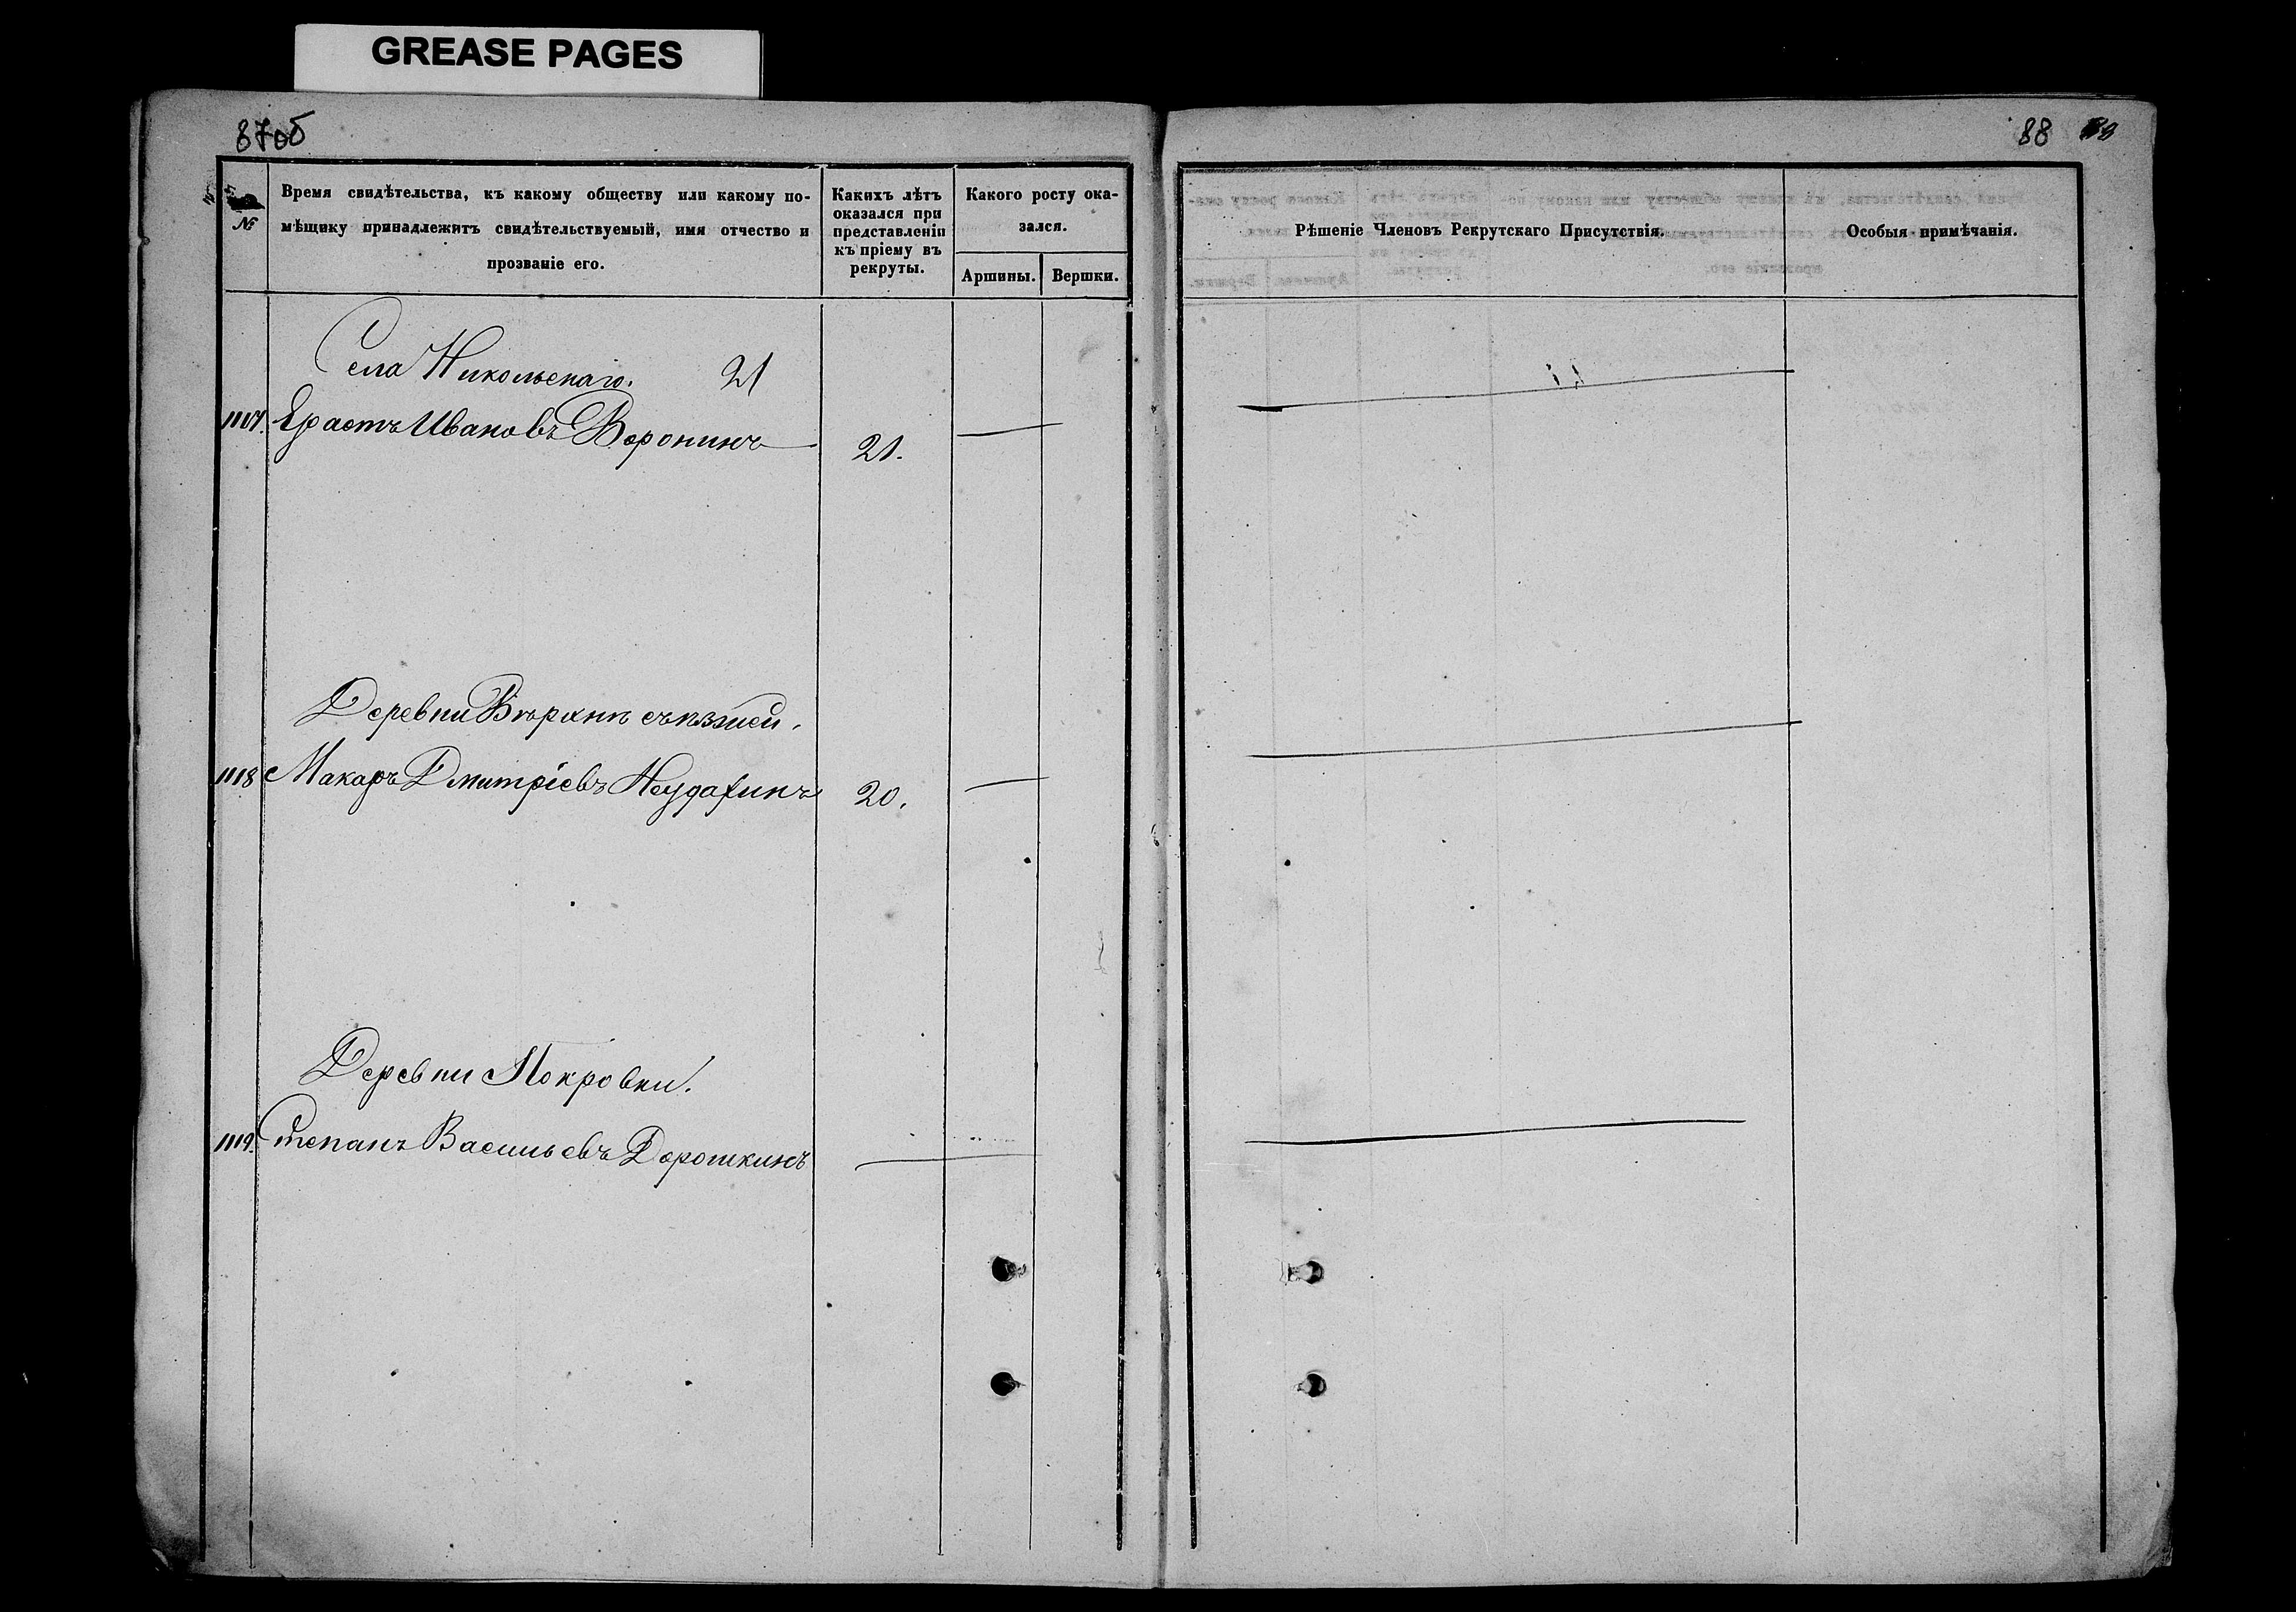 GREASE PAGES
87об
№
Время свидѣтельства, къ какому обществу или какому по-
мѣщику принадлежитъ свидѣтельствуемый, имя отчество и
прозваніе его.
Какихъ лѣтъ
оказался при
представленіи
къ пріему въ
рекруты.
Какого росту ока-
зался.
Аршины.
Вершки.
Села Никольскаго. 21
1117. Ерастъ Ивановъ Воронинъ 21.
Деревни
1118 Макаръ Дмитріевъ Неудахинъ 20.
Деревни Покровки.
1119. Степанъ Васильевъ Дорошкинъ
88
Рѣшеніе Членовъ Рекрутскаго Присутствія.
Особыя примѣчанія.